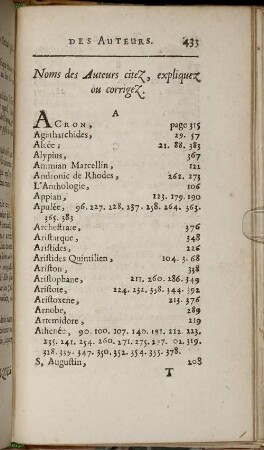 DES AUTEURS. 433
Noms des Auteurs citez, expliquez
ou corrigez.
A
ACRON, page 315
Agatharchides, 29. 57
Alcée, 21. 88. 383
Alypius, 367
Ammian Marcellin, 121
Andronic de Rhodes, 262. 273
L'Anthologie, 106
Appian, 123. 179. 190
Apulée, 96. 127. 128. 137. 258. 264. 363.
365. 383
Archestrate, 376
Aristarque, 348
Aristides, 226
Aristides Quintilien, 104. 3. 68
Ariston, 338
Aristophane, 211. 260. 286. 349
Aristote, 224. 232. 338. 344. 392
Aristoxene, 213. 376
Arnobe, 289
Artemidore, 219
Athenée, 90. 100. 107. 140. 191. 212. 223.
235. 241. 254. 260. 271. 275. 297. 02. 319.
328. 339. 347. 350. 352. 354. 355. 378.
S. Augustin, 208
T